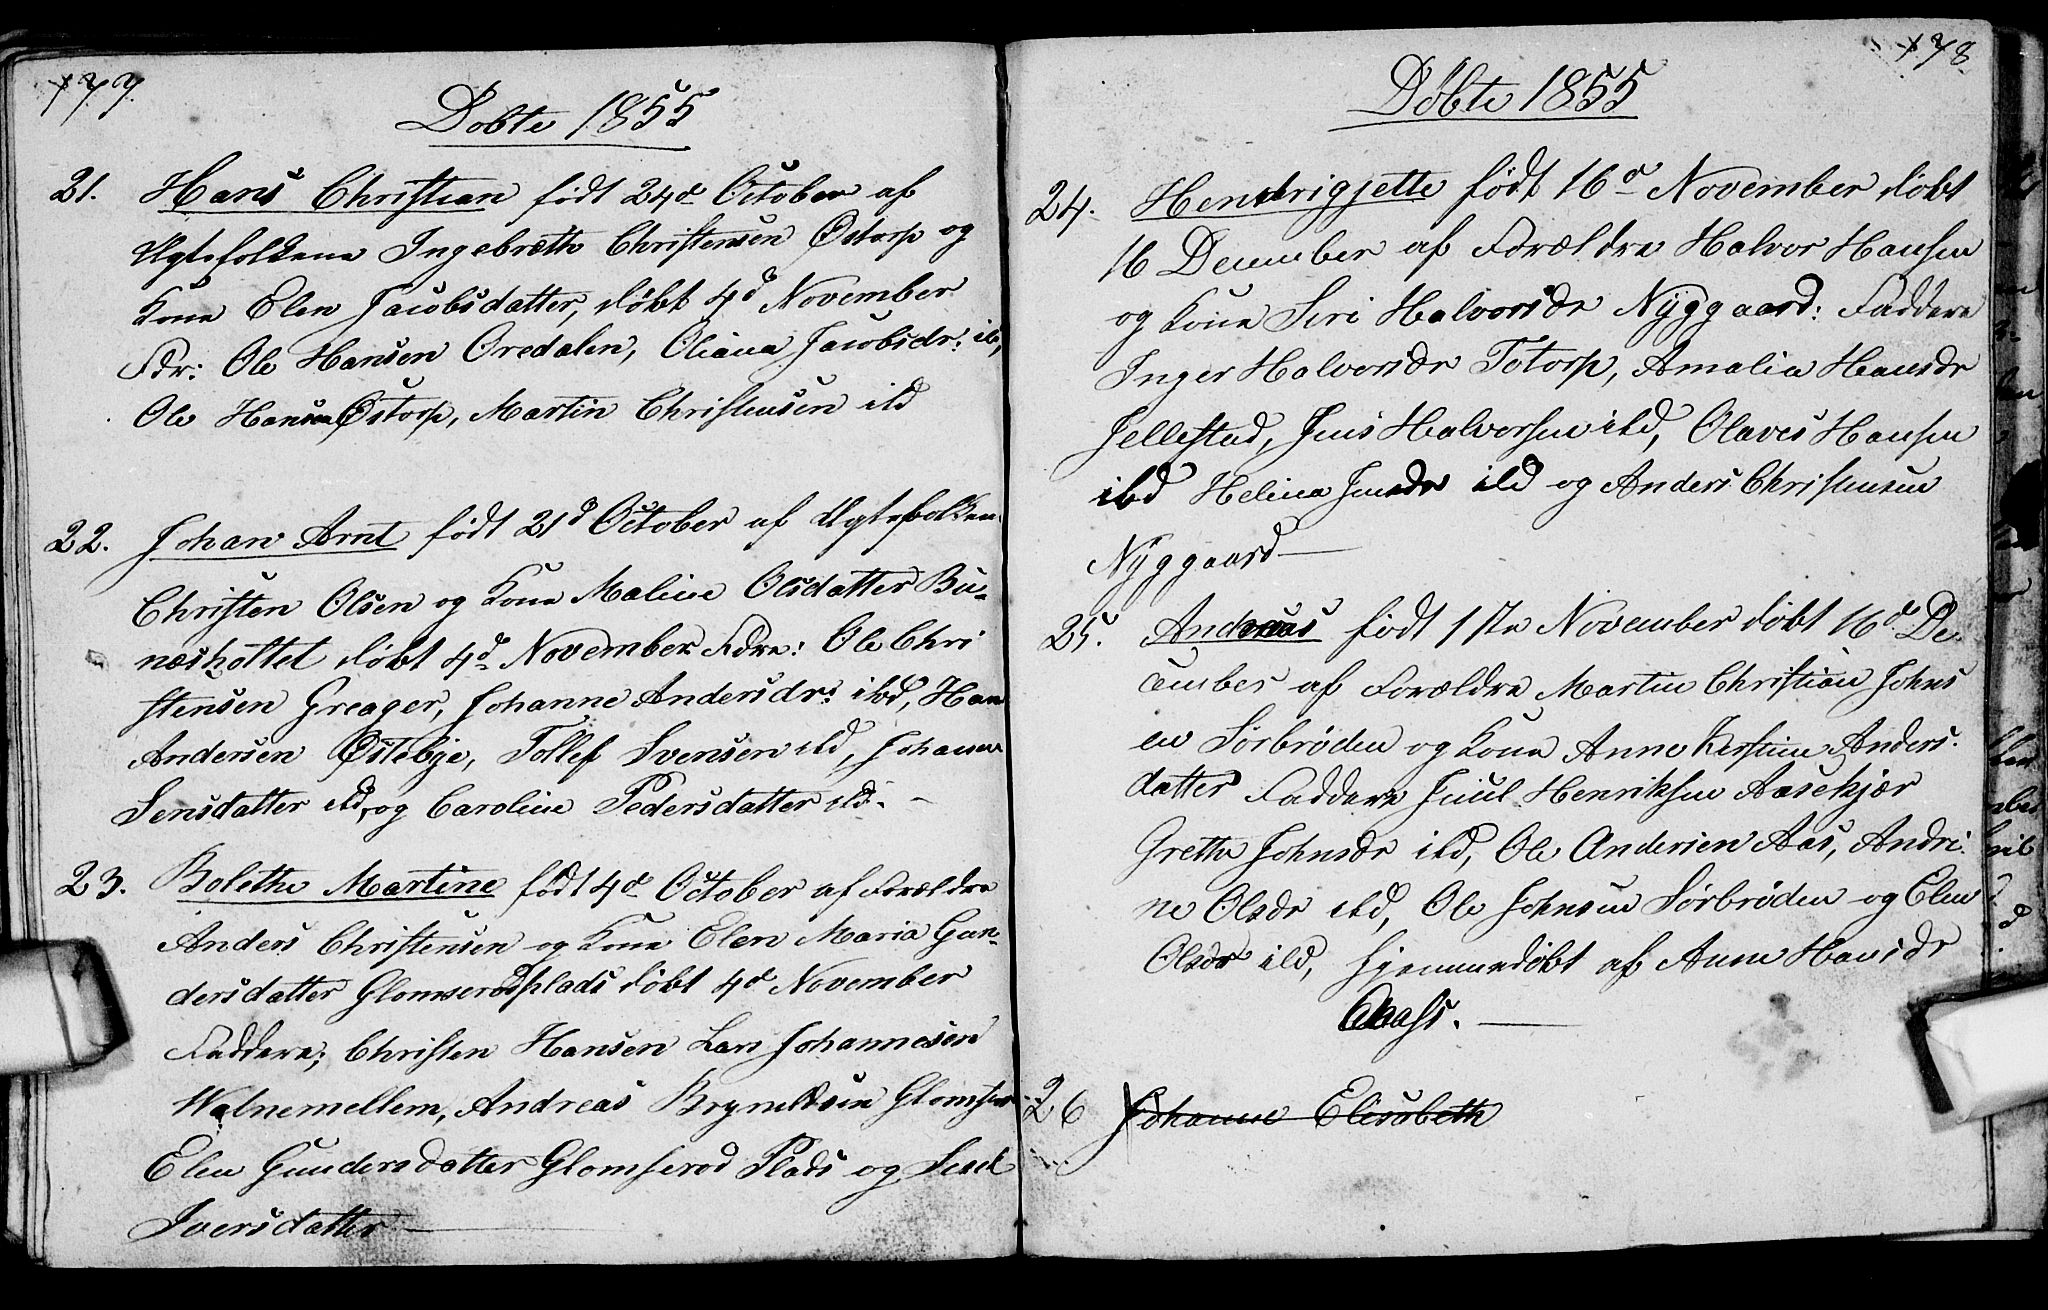 177.
Döbte 1855
21. Hans Christian födt 24de October af
Ægtefolkene Ingebreth Christensen Östorp og
Kone Elen Jacobsdatter, döbt 4d November
Fdr: Ole Hansen Oredalen, Oliana Jacobsdr: ib,
Ole Hansen Östorp, Martin Christensen ibd
22. Johan Arnt födt 21d October af Ægtefolkene
Christen Olsen og Kone Maline Olsdatter Bu-
næshottet döbt 4d November Fdre: Ole Chri
stensen Greager, Johanne Andersdr: ibd, Han
Andersen Östebye, Tollef Svensen ibd, Johanne
Jensdatter ibd, og Caroline Pedersdatter ibd. —
23. Bolethe Martine födt 4de October af Forældre
Anders Christensen og Kone Elen Maria Gun-
dersdatter Glomserödplads döbt 4de November
Faddere; Christen Hansen Lars Johannesen
Walnemellem, Andreas Brynildsen
Elen Gundersdatter Glomseröd Plads og
Iversdatter —
178
Döbte 1855
24. Hendrigjette födt 16de November döbt
16 December af Forældre Halvor Hansen
og Kone Siri Halvorsdr Nyggaard: Faddere
Inger Halvorsdr Totorp, Amalia Hansdr
Jellestad, Jens Halvorsen ibd, Olaves Hansen
ibd Helina Jensdr ibd og Anders Christensen
Nyggaard —
25. Andreas födt 1ste November döbt 16d De
cember af Forældre Martin Christian Johns
en Sörbröden og Kone Anne Kerstine Anders.
datter Faddere Juul Henriksen Aasekjær
Grethe Johnsdr ibd, Ole Andersen Aas, Andri.
ne Olsdr ibd, Ole Johnsen Sörbröden og Elen
Olsdr ibd, hjemmedöbt af Anne Hansdr
Aass. —
26 Johanne Elisabeth